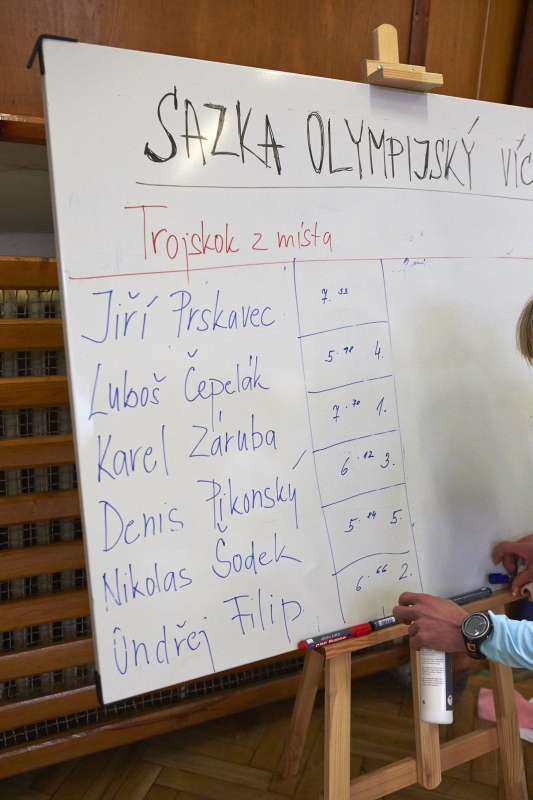 SAZKA OLYMPIJSKÝ VÍC
Trojskok z místa
Jiří Prskavec 7.55
Luboš Čepelák 5.98 4.
Karel Záruba 7.70 1.
Denis Pikonský 6.12 3.
Nikolas Šodek 5.94 5.
Ondřej Filip 6.66 2.